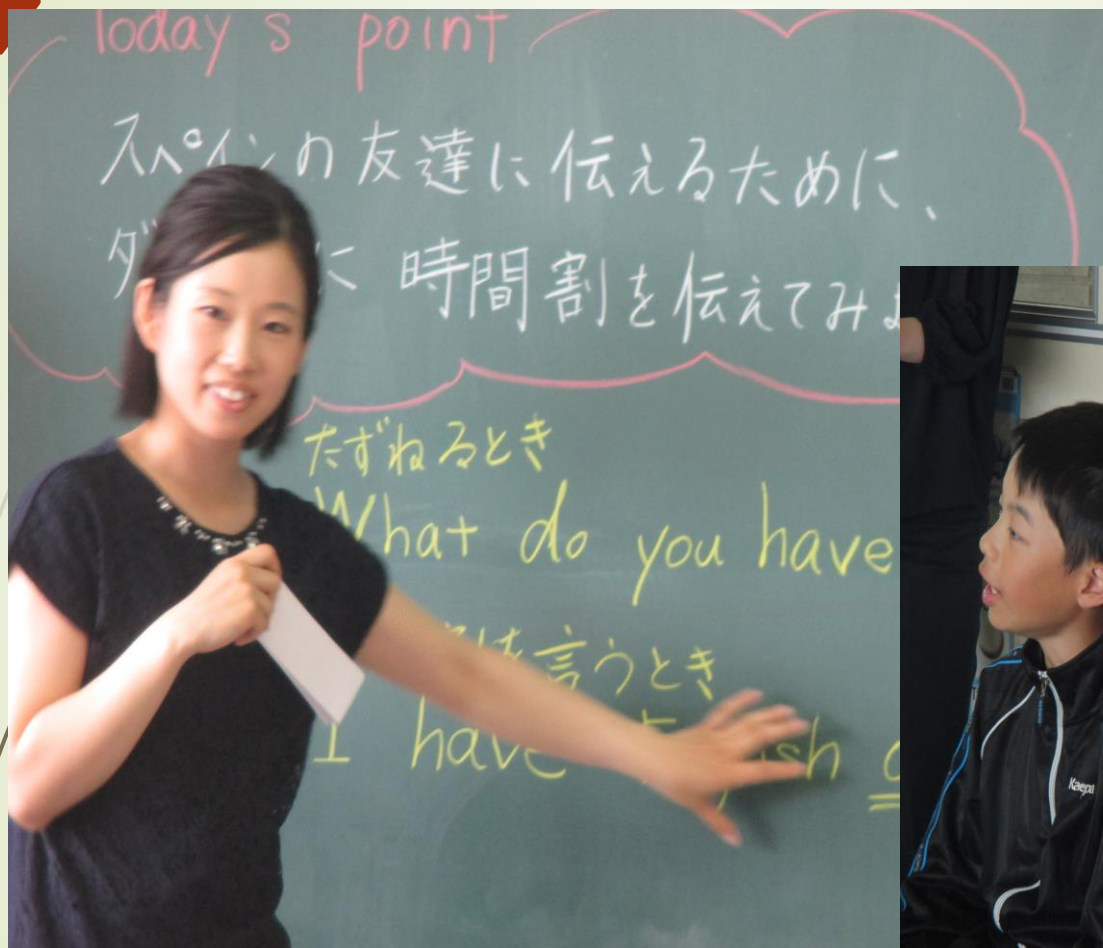 Today's point
スペインの友達に伝えるために、
に 時間割を伝えてみ
たずねるとき
What do you have
を言うとき
I have
Kaepa